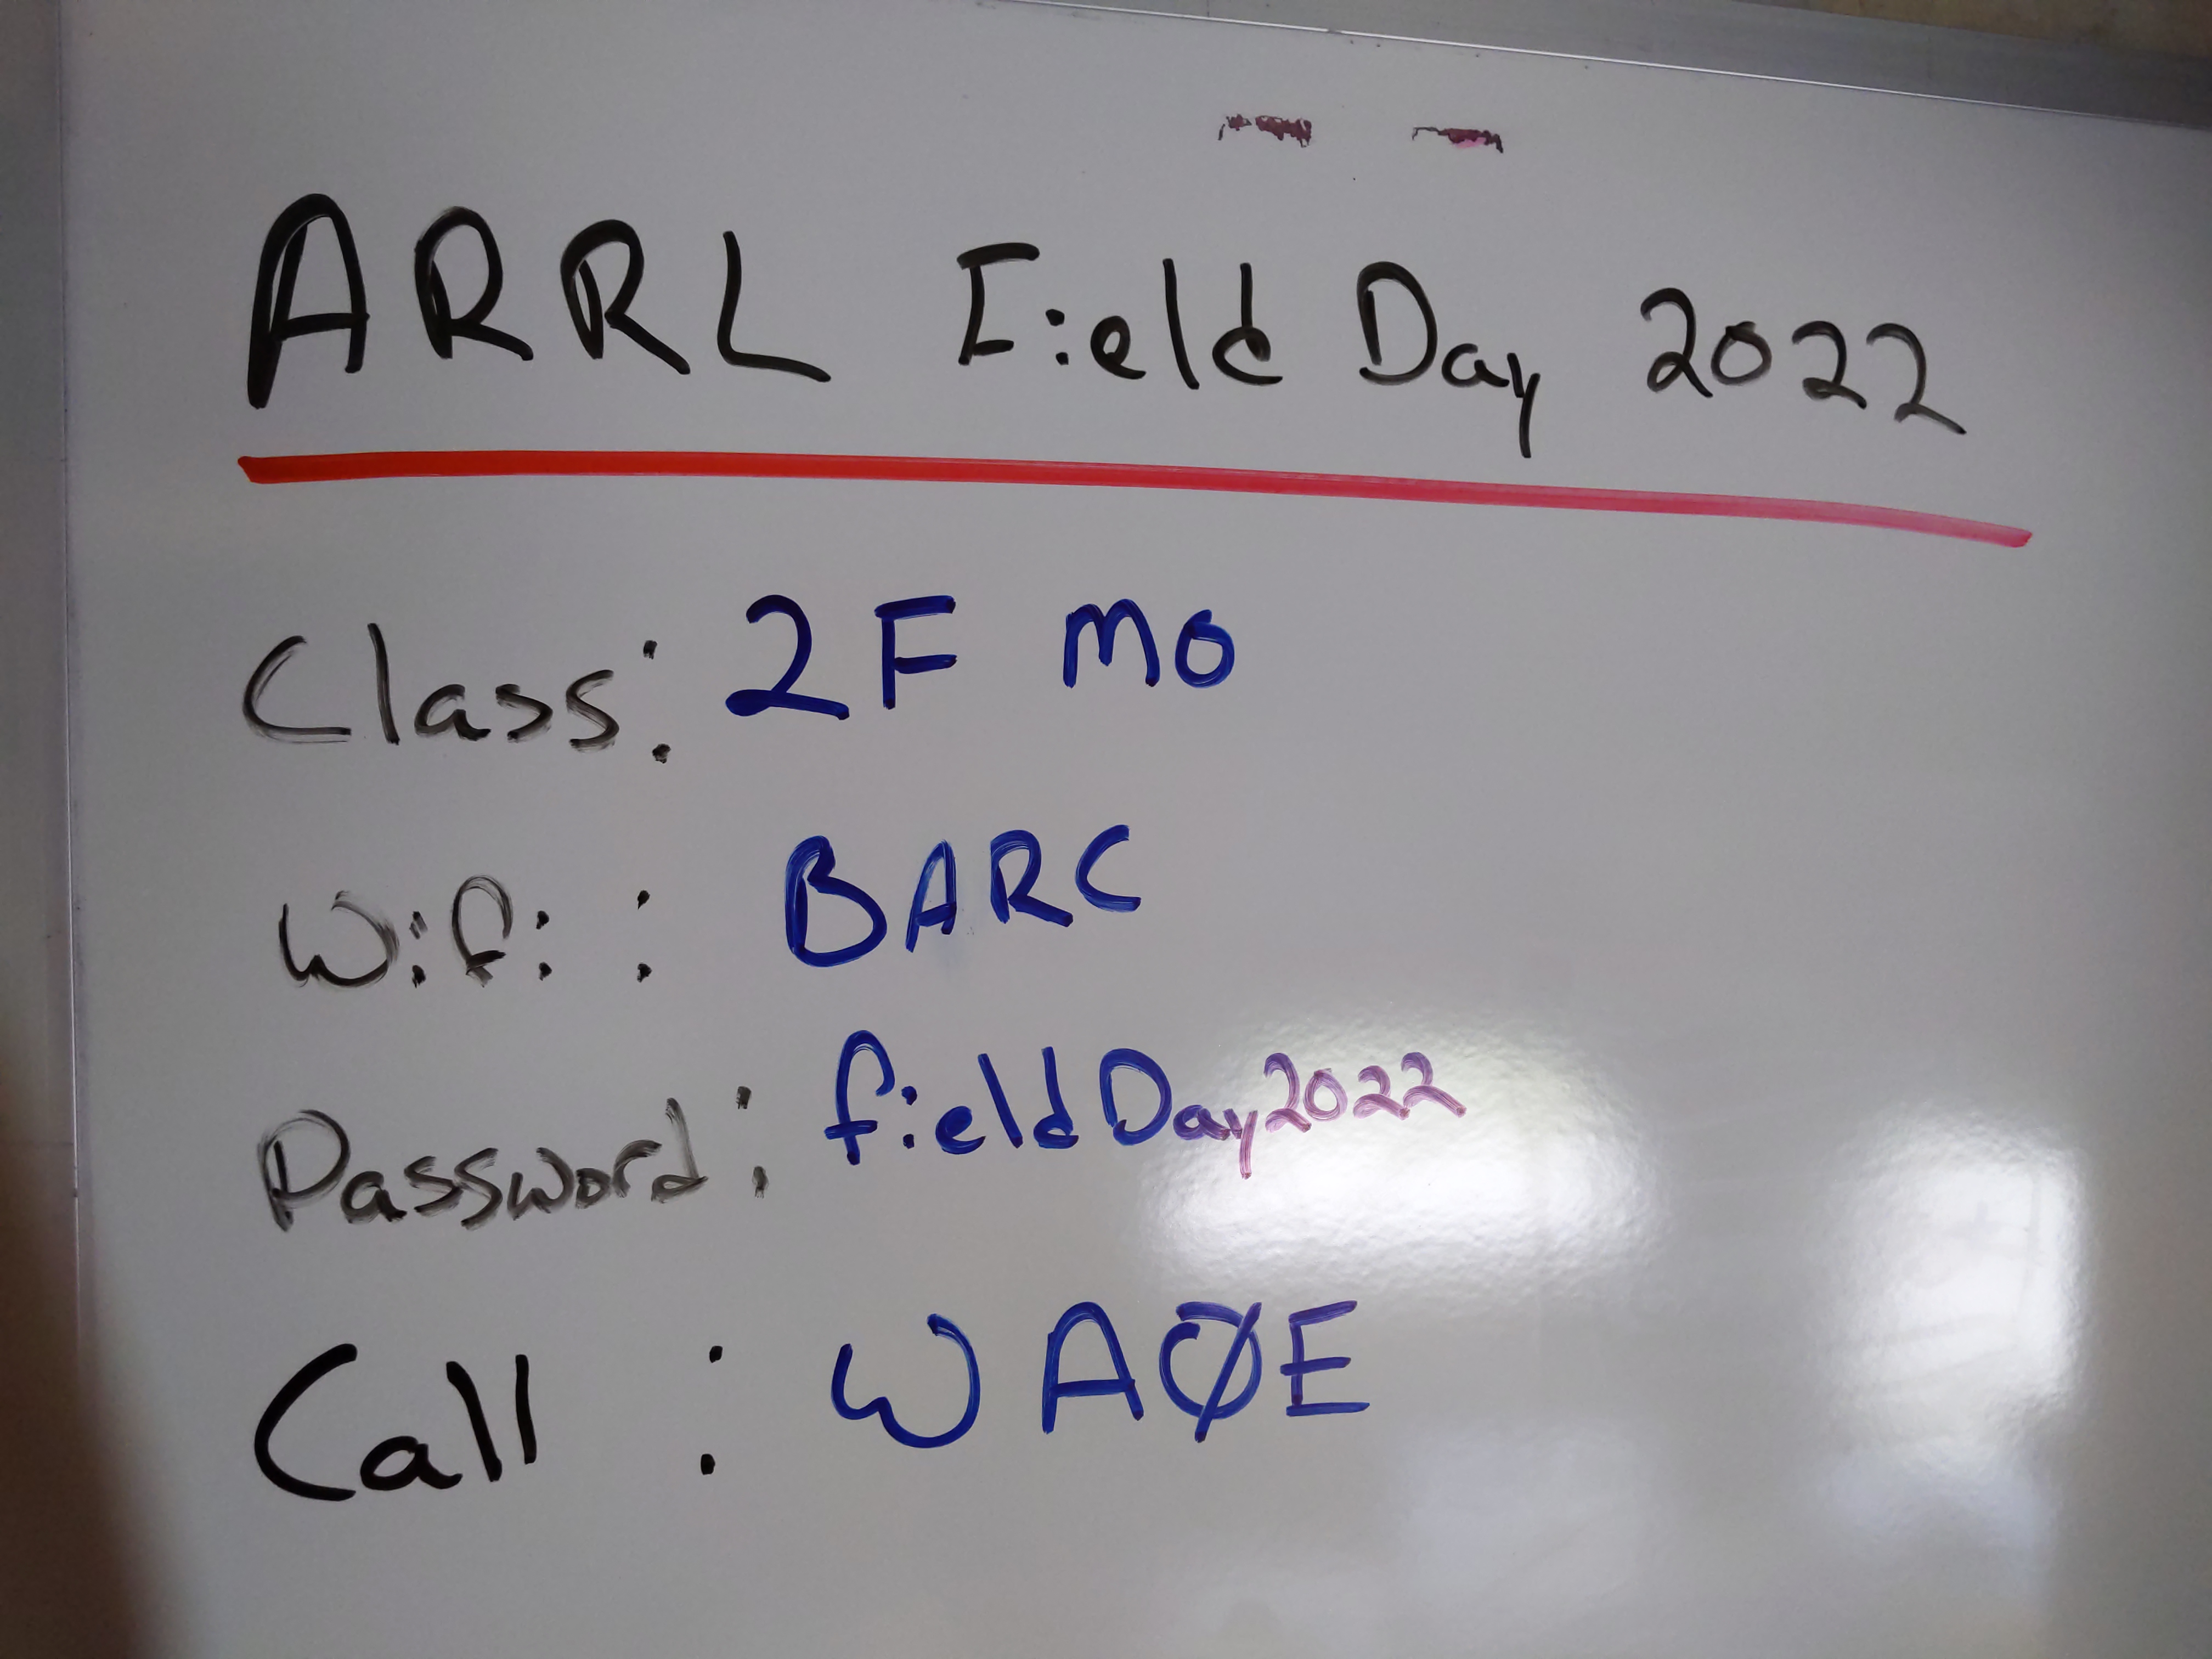 ARRL Field Day 2022
Class: 2F MO
Wifi: BARC
Password: fieldDay2022
Call: WAØE